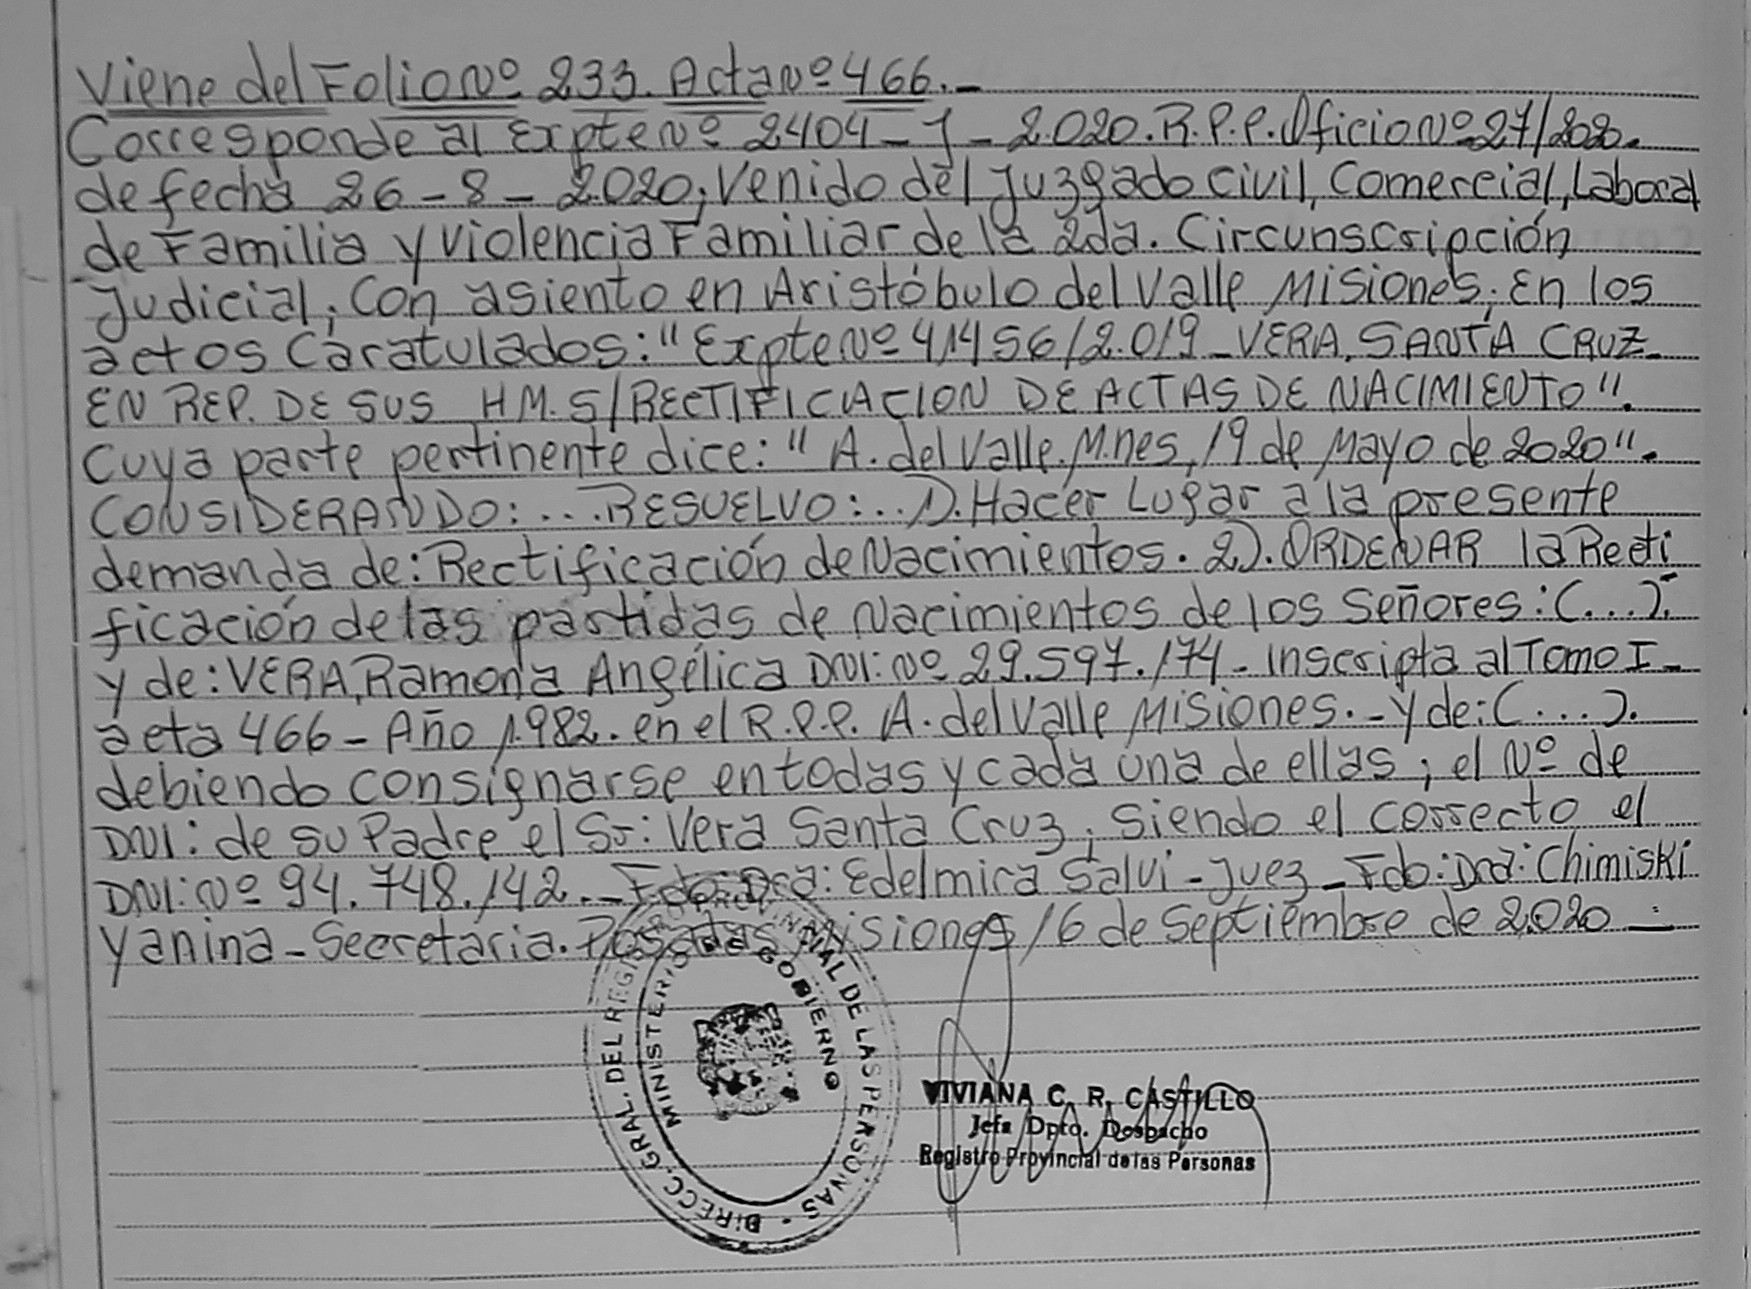 Viene del Folio Nº 233. Acta Nº 466.-
Corresponde al Expte Nº 2404 - J - 2.020. R.P.P. Oficio Nº 27/2020.
de fecha 26 - 8 - 2.020; Venido del Juzgado Civil, Comercial, Laboral
de Familia y Violencia Familiar de la 2da. Circunscripción
Judicial; Con asiento en Aristóbulo del Valle Misiones; En los
actos Caratulados: "Expte Nº 41456/2.019 - VERA, SANTA CRUZ
EN REP. DE SUS HM. S/RECTIFICACION DE ACTAS DE NACIMIENTO".
Cuya parte pertinente dice: "A. del Valle. M.nes, 19 de Mayo de 2020".
CONSIDERANDO: ... RESUELVO: .. 1). Hacer Lugar a la presente
demanda de: Rectificación de Nacimientos. 2). ORDENAR la Recti
ficación de las partidas de Nacimientos de los Señores: (...).
y de: VERA, Ramona Angélica DNI: Nº 29.597.174 - Inscripta al Tomo I -
acta 466 - Año 1.982. en el R.P.P. A. del Valle Misiones. - y de: (...).
debiendo consignarse en todas y cada una de ellas; el Nº de
DNI: de su Padre el Sr: Vera Santa Cruz; Siendo el correcto el
DNI: Nº 94.748.142. - Fdo: Dra: Edelmira Salvi - Juez - Fdo: Dra: Chimiski
Yanina - Secretaria. Posadas, Misiones 16 de Septiembre de 2.020
DIRECC. GRAL. DEL REGISTRO PROVINCIAL DE LAS PERSONAS -
MINISTERIO DE GOBIERNO
VIVIANA C. R. CASTILLO
Jefa Dpto. Despacho
Registro Provincial de las Personas